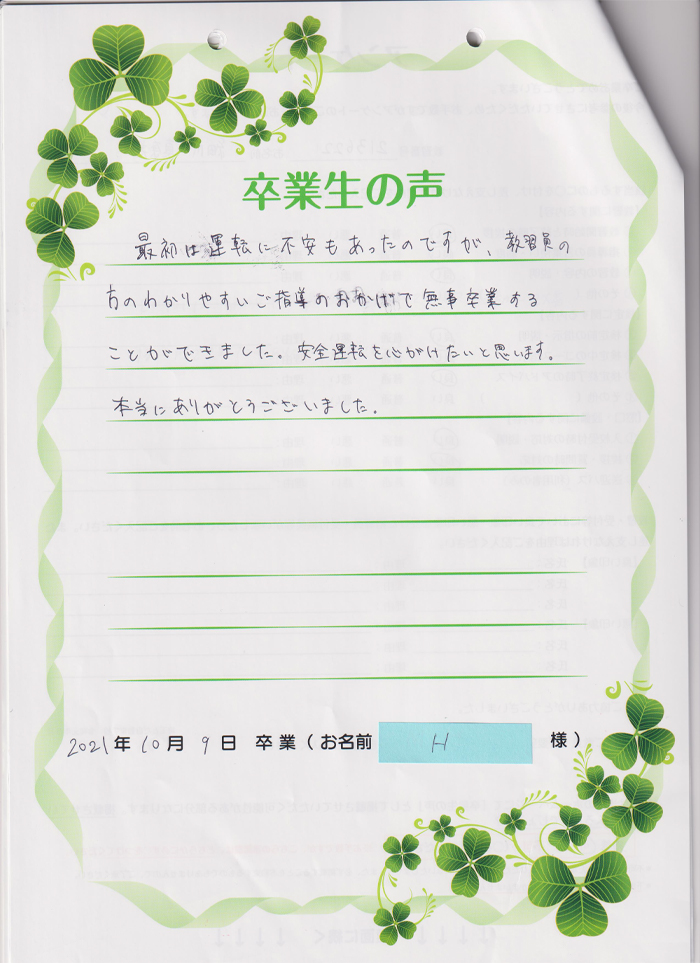 卒業生の声
最初は運転に不安もあったのですが、教習員の
方のわかりやすいご指導のおかげで無事卒業する
ことができました。安全運転を心がけたいと思います。
本当にありがとうございました。
2021年10月9日 卒業(お名前 H 様)